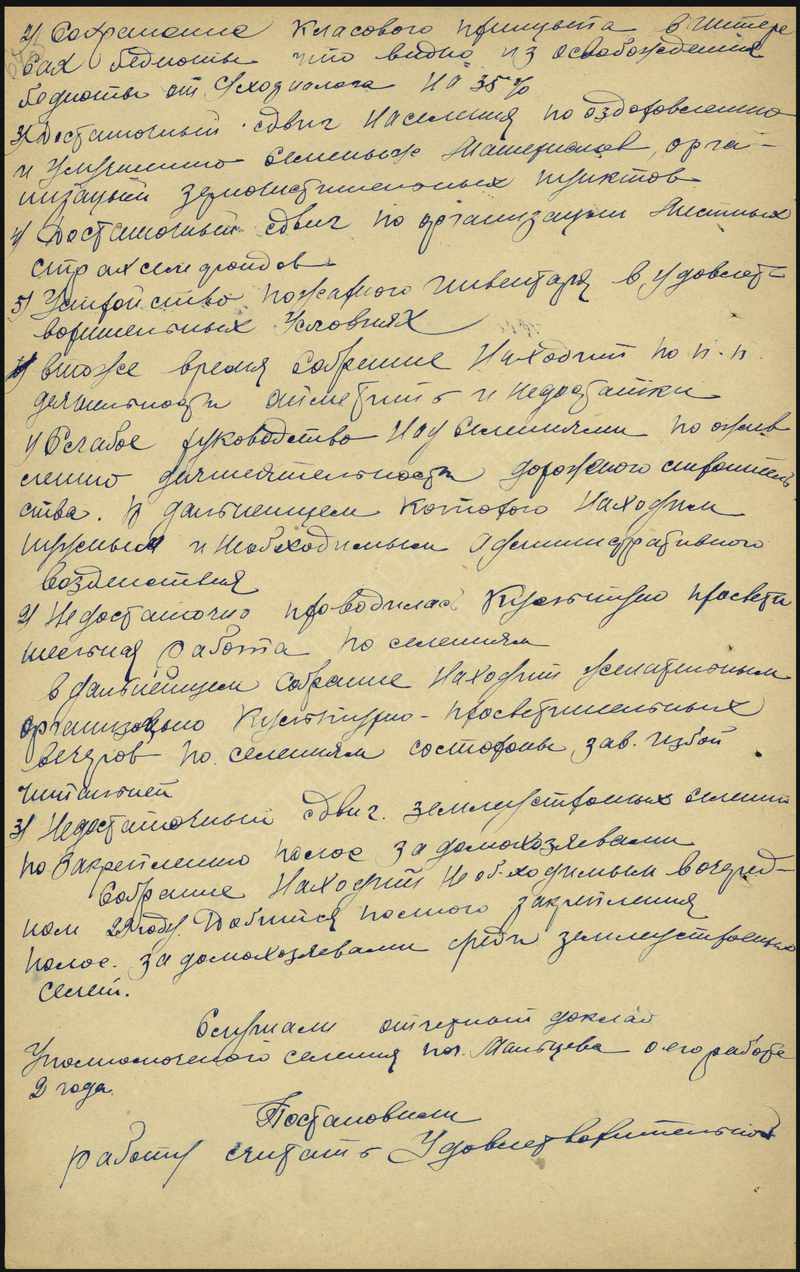 2) Сохранение класового принцыпа в интере
сах бедноты что видно из освобождения
бедноты от с/хозналога на 35%
3) Достаточный сдвиг населения по оздоровлению
и улучшению семенных Материалов, орга-
низацый зерноочистительных пунктов
4) Достаточный сдвиг по организацыи Местных
страхсемфондов
5) Устройство пожарного инвентаря в удовлет-
ворительных условиях
втоже время собрание находит по п.п.
деятельности отметить и недостатки
1) Слабое руководство над селениями по ожив
лению деятельности дорожного строитель
ства. В дальнейшем которого находим
нужным и необходимым административного
воздействия
2) Недостаточно проводилась культурно просвети
тельная работа по селениям
в дальнейшем собрание находит желательным
организовано культурно-просветительных
вечеров по селениям состороны зав. избой
читальней
3) Недостаточный сдвиг землеустроеных селений
по закреплению полос за домохозяевами
Собрание находит необходимым вочеред-
ном 29 году. Добится полного закрепления
полос. за домохозяевами среди землеустроеных
селен.
Слушали отчетный доклад
Уполномоченого селения пог. Мальцева о его работе
2 года.
Постановили
работу считать Удовлетворительной